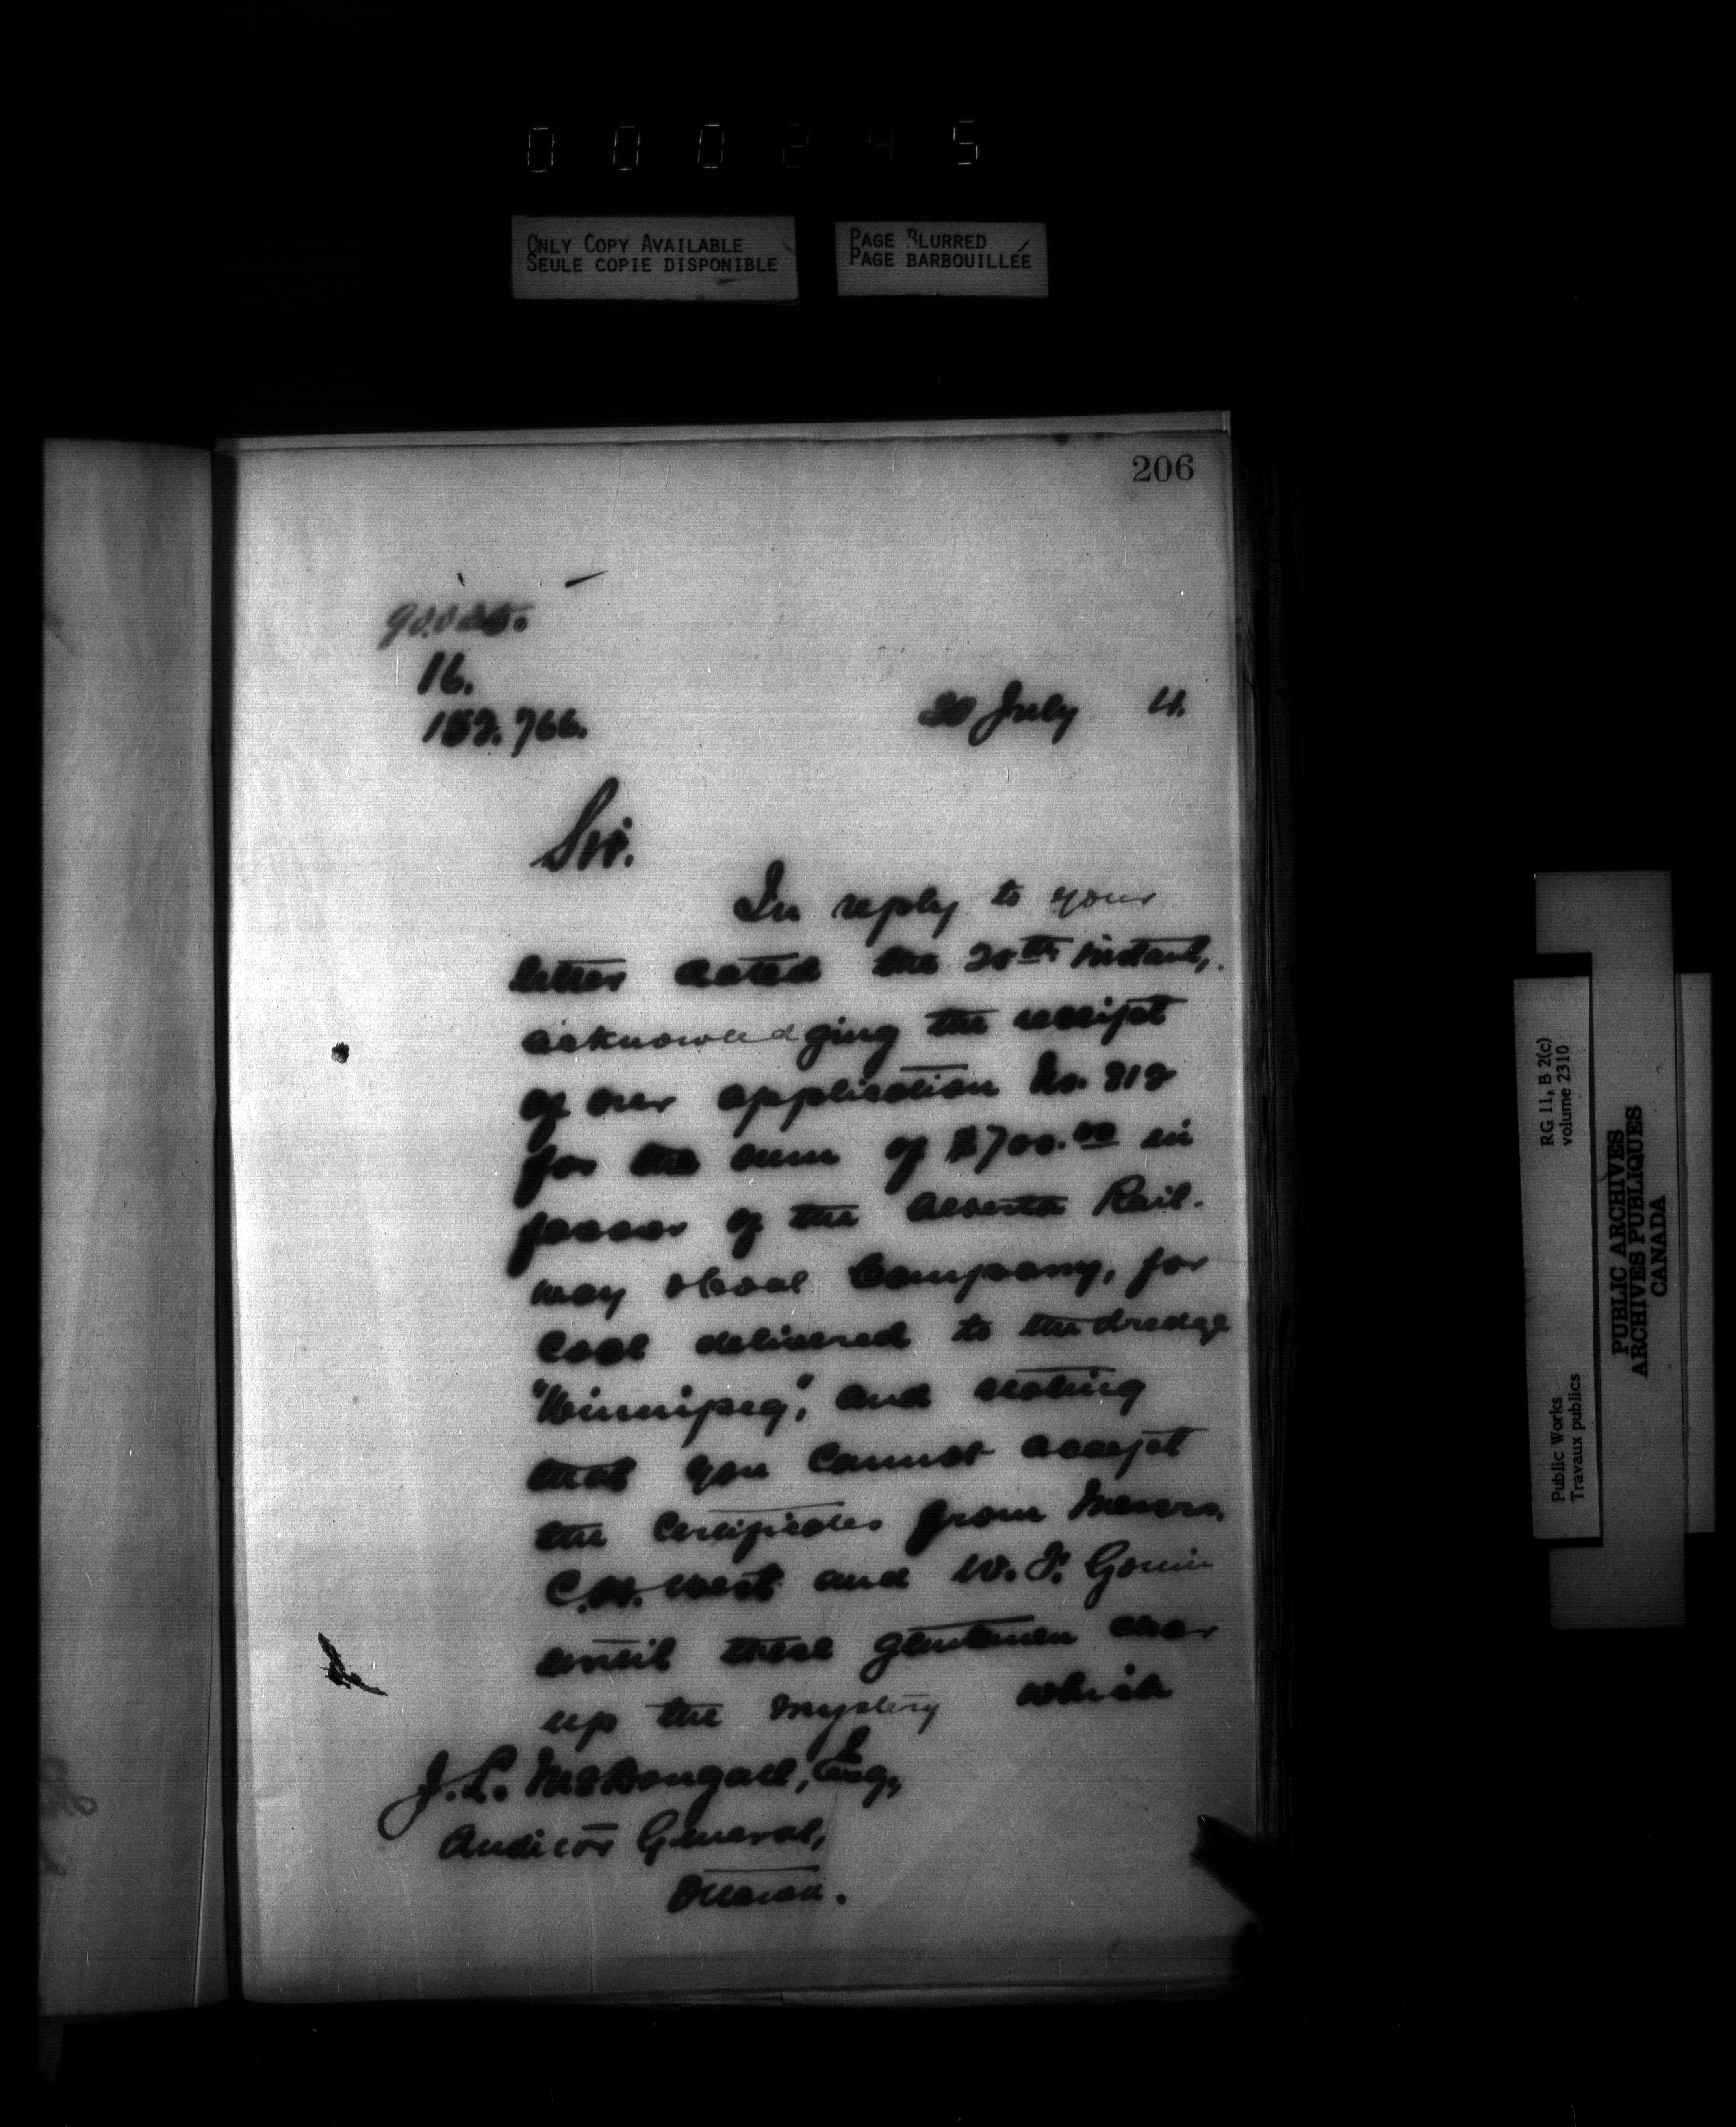 000245
ONLY COPY AVAILABLE
SEULE COPIE DISPONIBLE
PAGE BLURRED
PAGE BARBOUILLÉE
206
16.
July 4.
Sir.
In reply to your
letter dated the 20th instant,
acknowledging the receipt
of our application No.
for the sum of $700.00 in
favor of the Alberta Rail-
way & Coal Company, for
Coal delivered to the dredge
"Winnipeg", and stating
that you cannot accept
the Certificates from Messrs.
C.W. West and W. F. Gouin
until these gentlemen clear
up the mystery which
J. L. McDougall, Esq,
Auditor General,
Ottawa.
RG 11, B 2(c)
volume 2310
Public Works
Travaux publics
PUBLIC ARCHIVES
ARCHIVES PUBLIQUES
CANADA